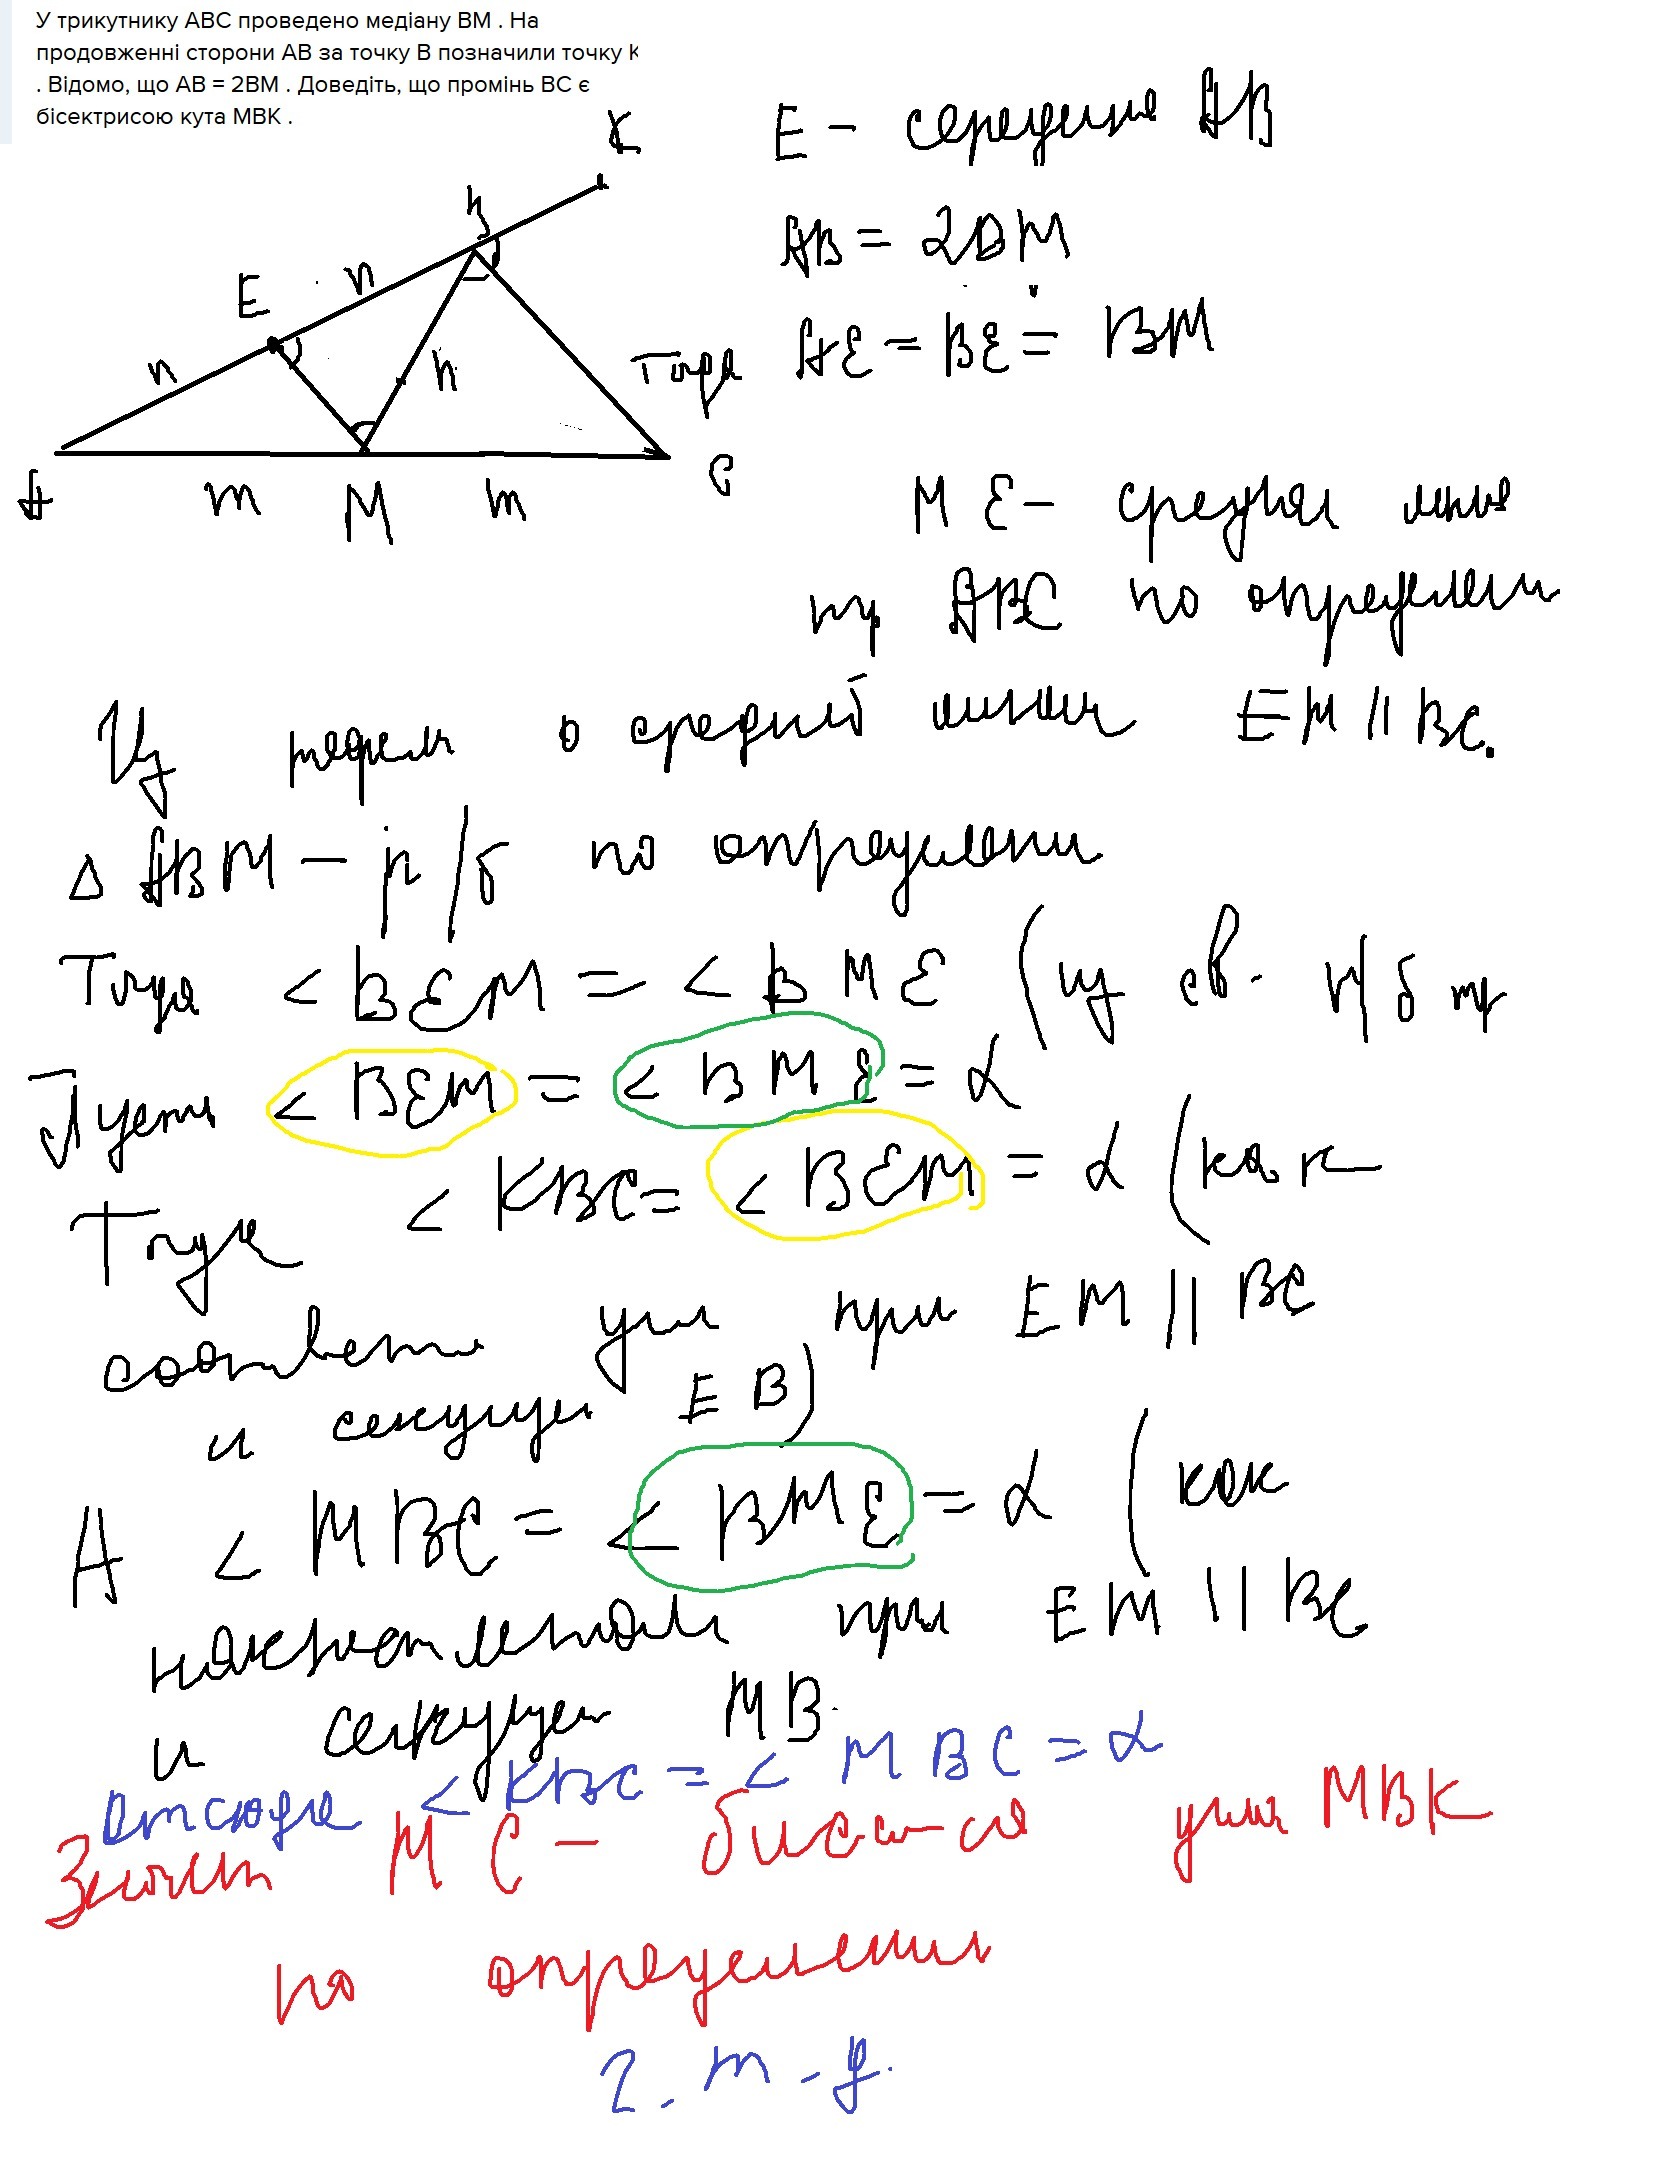 У трикутнику АВС проведено медіану ВМ . На
продовженні сторони АВ за точку В позначили точку К
. Відомо, що АВ = 2ВМ . Доведіть, що промінь ВС є
бісектрисою кута МВК .
K
E - середина AB
B
n
AB = 2BM
E
n
n
Тогда AE = BE = BM
A
m
M
m
C
ME - средняя линия
тр ABC по определени
Из теорем о средней линии EM || BC.
Δ ABM - р/б по определени
Тогда < BEM = < BME (из св. р/б тр
Пусть < BEM = < BME = α
Тогда < KBC = < BEM = α (как
соответ углы при EM || BC
и секущей EB)
А < MBC = < BME = α (как
накрест при EM || BC
и секущей MB.
Отсюда < KBC = < MBC = α
Значит MC - бисс-са угла MBK
по определению
ч.т.д.